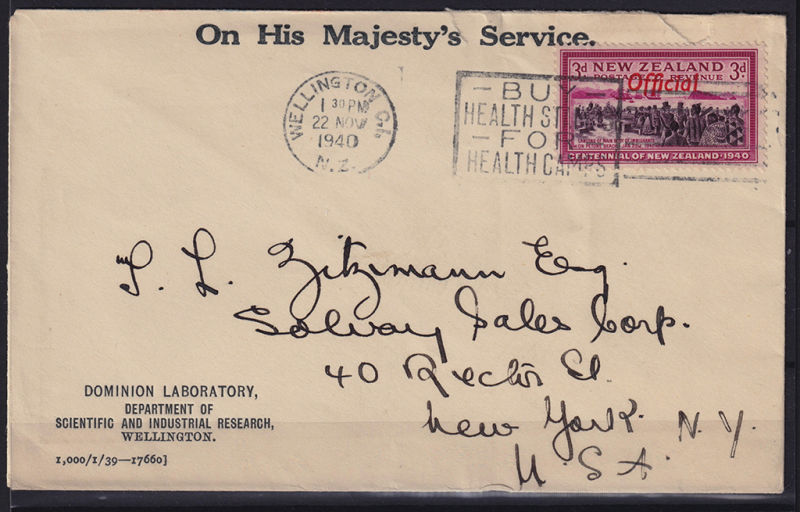 On His Majesty's Service.
WELLINGTON C.1.
1 30 PM
22 NOV
1940
N.Z.
- BUY
HEALTH ST
- FOR
HEALTH CAMPS
3d NEW ZEALAND 3d
POSTAGE & REVENUE
Official
CENTENNIAL OF NEW ZEALAND · 1940
L. Zitzmann Esq.
Solvay Sales Corp.
40 Rector St.
New York. N.Y.
U.S.A.
DOMINION LABORATORY,
DEPARTMENT OF
SCIENTIFIC AND INDUSTRIAL RESEARCH,
WELLINGTON.
1,000/1/39—17660]